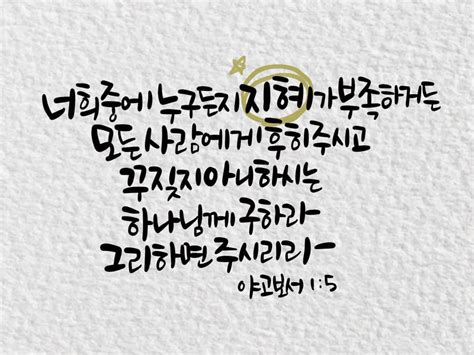 너희중에 누구든지 지혜가 부족하거든
모든 사람에게 후히 주시고
꾸짖지 아니하시는
하나님께 구하라
그리하면 주시리라
야고보서 1:5